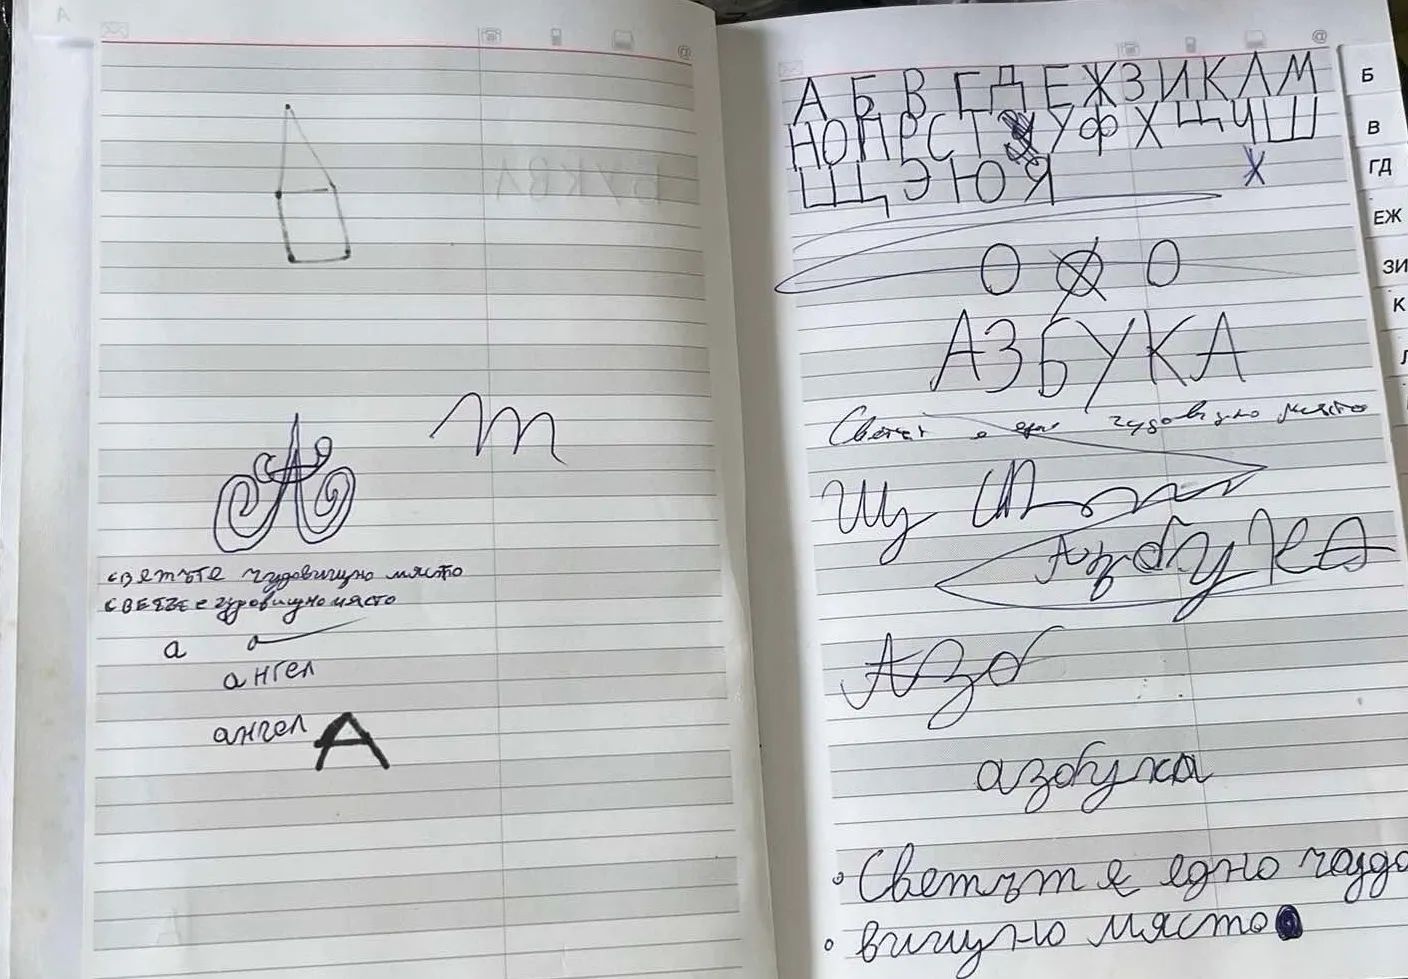 А
БУКВА
m
А
светъте чудовищно място
светъте чудовищно място
а а
ангел
ангел А
А Б В Г Д Е Ж З И К Л М
Н О П Р С Т У Ф Х Ц Ч Ш
Щ Э Ю Я Х
О О О
АЗБУКА
Светът е едно чудовищно място
Щ
Азбука
Азб
азбука
Светът е едно чудо
вищно място
Б
В
ГД
ЕЖ
ЗИ
К
Л